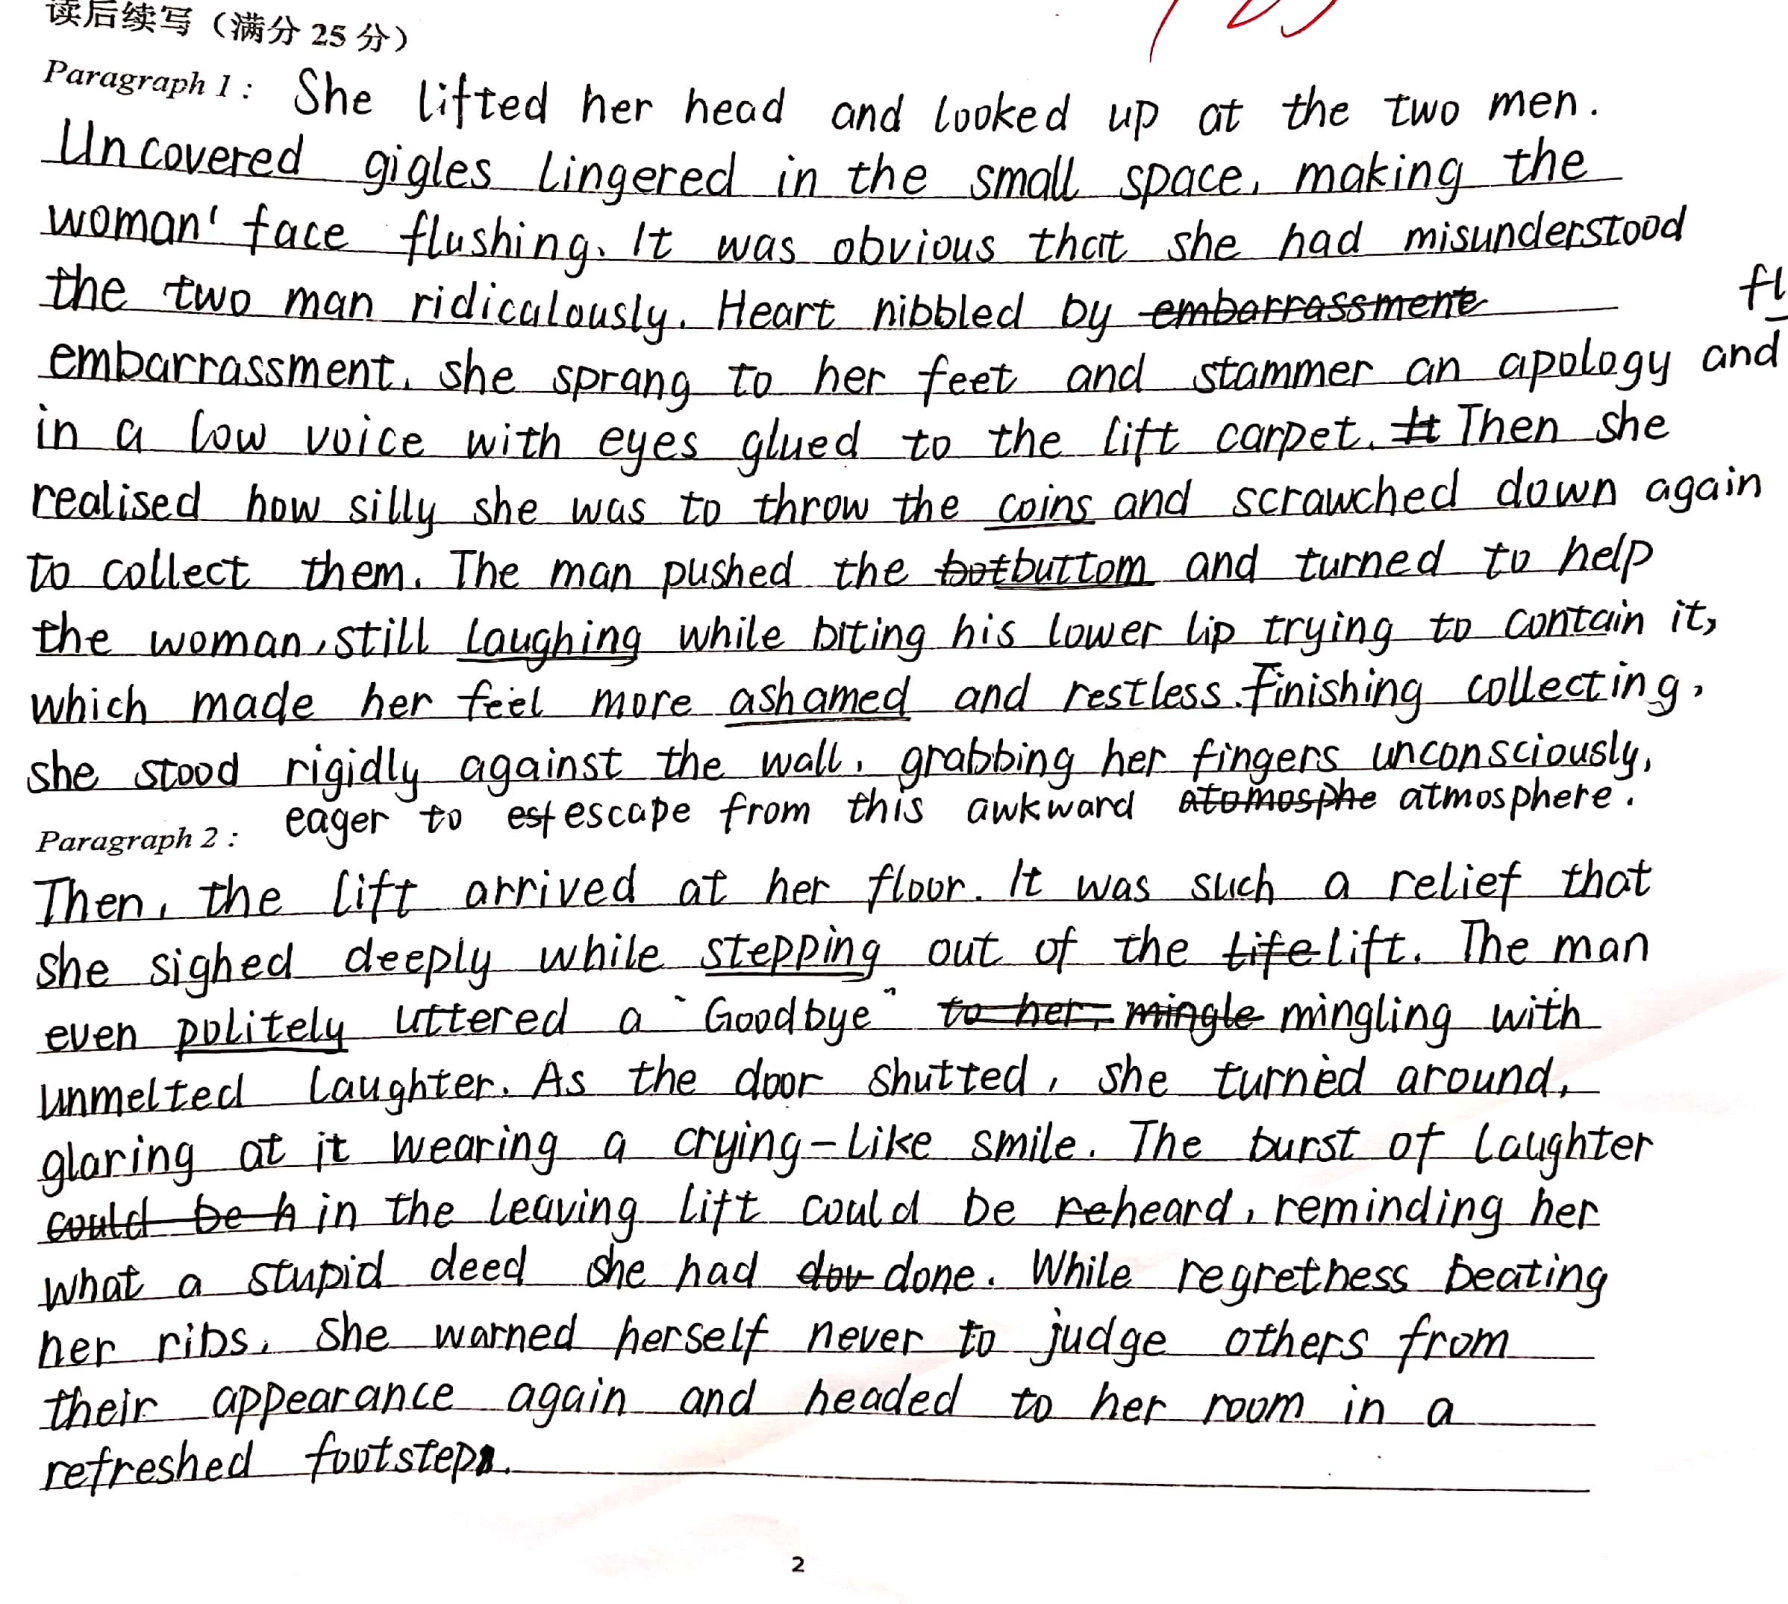 读后续写（满分 25 分）
Paragraph 1: She lifted her head and looked up at the two men.
Uncovered gigles lingered in the small space, making the
woman' face flushing. It was obvious that she had misunderstood
the two man ridicalously. Heart nibbled by embarrassment
embarrassment, she sprang to her feet and stammer an apology and
in a low voice with eyes glued to the lift carpet. It Then she
realised how silly she was to throw the coins and scrawched down again
to collect them. The man pushed the bot buttom and turned to help
the woman, still laughing while biting his lower lip trying to contain it,
which made her feel more ashamed and restless. Finishing collecting,
she stood rigidly against the wall, grabbing her fingers unconsciously,
eager to est escape from this awkward atomosphe atmosphere.
Paragraph 2:
Then, the lift arrived at her floor. It was such a relief that
she sighed deeply while stepping out of the life lift. The man
even politely uttered a "Goodbye" to her, mingle mingling with
unmelted laughter. As the door shutted, she turned around,
glaring at it wearing a crying-like smile. The burst of laughter
could be h in the leaving lift could be re heard, reminding her
what a stupid deed she had dov done. While regretness beating
her ribs, she warned herself never to judge others from
their appearance again and headed to her room in a
refreshed footstep.
2